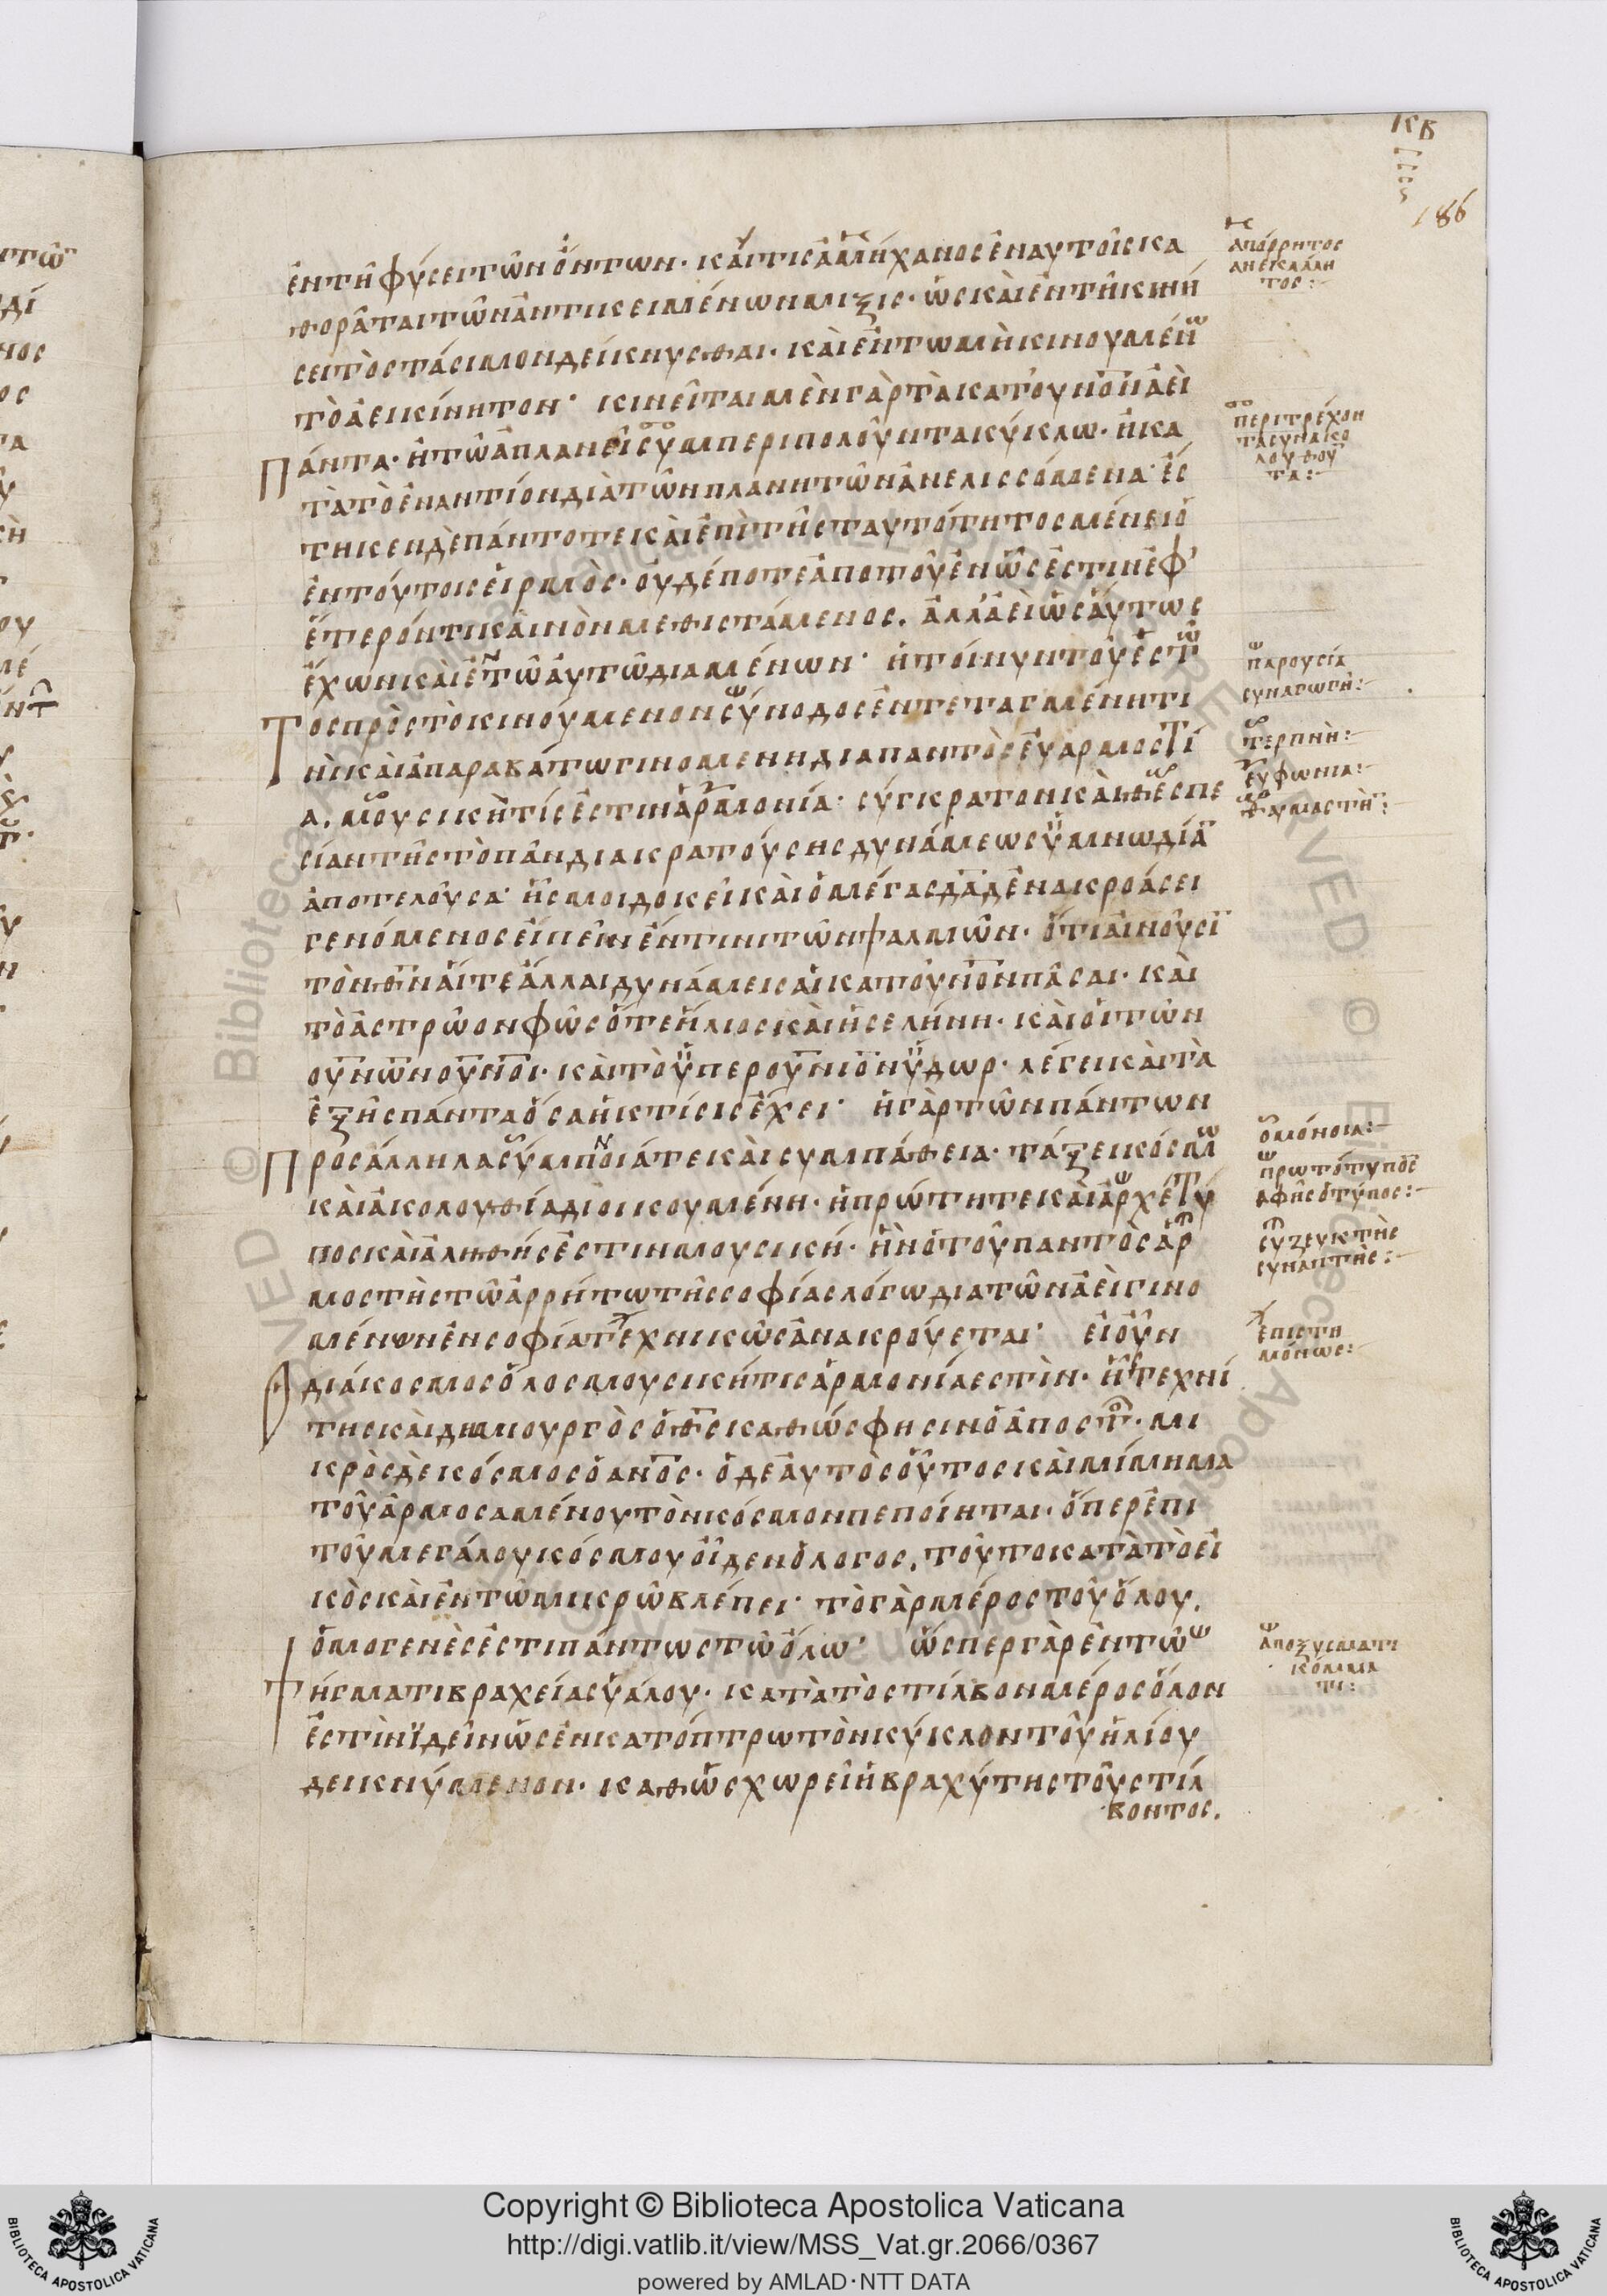 ΚΒ
186
ἐντῆ φύσει τῶν ὄντων· καί τισ ἀμήχανος ἐναυτοῖς κα
θορᾶται τῶν ἀντικειμένων μιξις· ὡς καὶ ἐν τῆ κινή
σει τὸ στάσιμον δείκνυσθαι· καὶ ἐν τω μὴ κινουμέν̅ω
τὸ ἀεικίνητον· κινεῖται μὲν γὰρ τὰ κατ' ου̅νο̅ν ἀεὶ
Πάντα· ἢ τῶ ἀπλανεῖ συμπεριπολοῦντα κύκλω· ἢ κα
τὰ τὸ ἐναντίον διὰ τῶν πλανητῶν ἀνελισσόμενα· ἕς
τηκεν δὲ πάντοτε καὶ ἐπὶ τῆς ταυτότητος μένει ὁ
ἐν τούτοις εἱρμὸς· οὐδέποτε ἀπὸ τοῦ ἐν ὧ ἐστιν ἐφ'
ἕτερόν τι καινὸν μεθιστάμενος. ἀλλ' ἀεὶ ὡσαύτως
ἔχων καὶ ἐν τῶ αὐτῶ διαμένων· ἡ τοίνυν τοῦ ἑστῶ
Τος πρὸς τὸ κινούμενον σύνοδος ἐν τεταγμένη τι
νὶ καὶ ἀπαραβάτω γινομενη διαπαντὸς εὐαρμοστί
α. μουσική τίς ἐστιν ἁρμονία· σύγκρατον καὶ θεσπε
σίαν τῆς τὸ πᾶν διακρατούσης δυνάμεως ὑμνωδίαν
ἀποτελοῦσα· ἧς μοι δοκεῖ καὶ ὁ μέγας δα̅δ̅ ἐν ακροάσει
γενόμενος εἰπεῖν ἔν τινι τῶν ψαλμῶν· ὅτι αἰνοῦσι
τὸν θ̅ν̅ αἵ τε ἄλλαι δυνάμεις αἱ κατ' ου̅νο̅ν πᾶσαι· καὶ
τὸ ἀστρῶον φῶς ὅ τε ἥλιος καὶ ἡ σελήνη· καὶ οἱ τῶν
ου̅νω̅ν ου̅νοί· καὶ τὸ ὑπερου̅νιο̅ν ὕδωρ· λέγει καὶ τὰ
ἑξῆς πάντα ὅσα ἡ κτίσις ἔχει· ἡ γὰρ τῶν πάντων
Πρὸς ἄλληλα σύμπνοιά τε καὶ συμπάθεια· τάξει κόσμω
καὶ ἀκολουθία διοικουμένη· ἡ πρώτη τε καὶ ἀρχέτυ
πος καὶ ἀληθής ἐστιν μουσική· ἣν ὁ τοῦ παντὸς ἁρ
μοστὴς τῶ ἀρρήτω τῆς σοφίας λόγω διατῶν ἀεὶ γινο
μένων ἐν σοφία τεχνικῶς ἀνακρούεται· εἰ οὖν
διάκοσμος ὅλος μουσική τις ἁρμονία εστὶν· ἧς τεχνί
της καὶ δημιουργὸς ὁ θ̅ς̅ καθώς φησιν ὁ ἀποστο· μι
κρὸς δὲ κόσμος ὁ ανο̅ς· ὁ δε αὐτὸς οὗτος καὶ μίμημα
τοῦ ἁρμοσαμένου τὸν κόσμον πεποίηται· ὅπερ ἐπι
τοῦ μεγάλου κόσμου οἶδεν ὁ λογος, τοῦτο κατὰ τὸ εἰ
κὸς καὶ ἐν τῶ μικρῶ βλέπει· τὸ γὰρ μέρος τοῦ ὅλου,
ὁμογενές ἐστι πάντως τῶ ὅλω· ὥσπερ γὰρ ἐν τῶ
ψήγματι βραχεία ὑάλου· κατὰ τὸ στίλβον μέρος ὅλον
ἐστὶν ἰδεῖν ὡς ἐν κατόπτρω τὸν κύκλον τοῦ ἡλίου
δεικνύμενον· καθὼς χωρεῖ ἡ βραχύτης τοῦ στίλ
βοντος.
απόρρητος
ανεκλάλη
τος:
περιτρέχον
τα συνακο
λουθοῦ
τα:
παρουσία
συναγωγὴ:
τερπνὴν:
εὐφωνια:
θαυμαστὴν:
ὁμόνοια:
πρωτότυπος
αφῆς ὁ τύπος:
συζευκτὴς
συναπτὴς:
ἐπιστη
μόνως:
ἀποξυσματι
κόμμα
τι:
Copyright © Biblioteca Apostolica Vaticana
http://digi.vatlib.it/view/MSS_Vat.gr.2066/0367
powered by AMLAD·NTT DATA